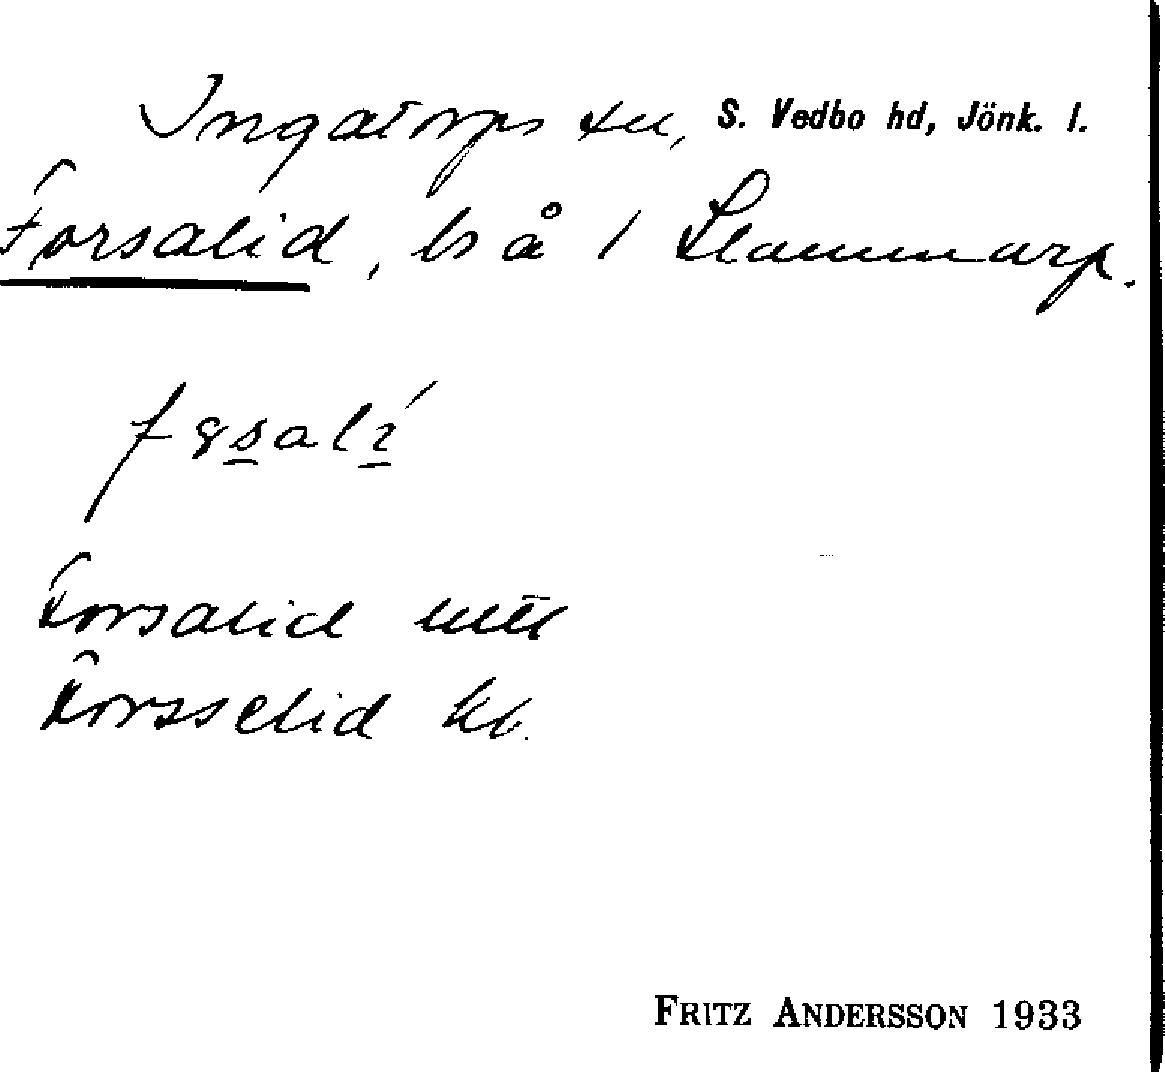 Ingatorps sn, S. Vedbo hd, Jönk. l.
Forsalid, ls å / Slammarp.
Forsalid
Forsselid kb.
FRITZ ANDERSSON 1933